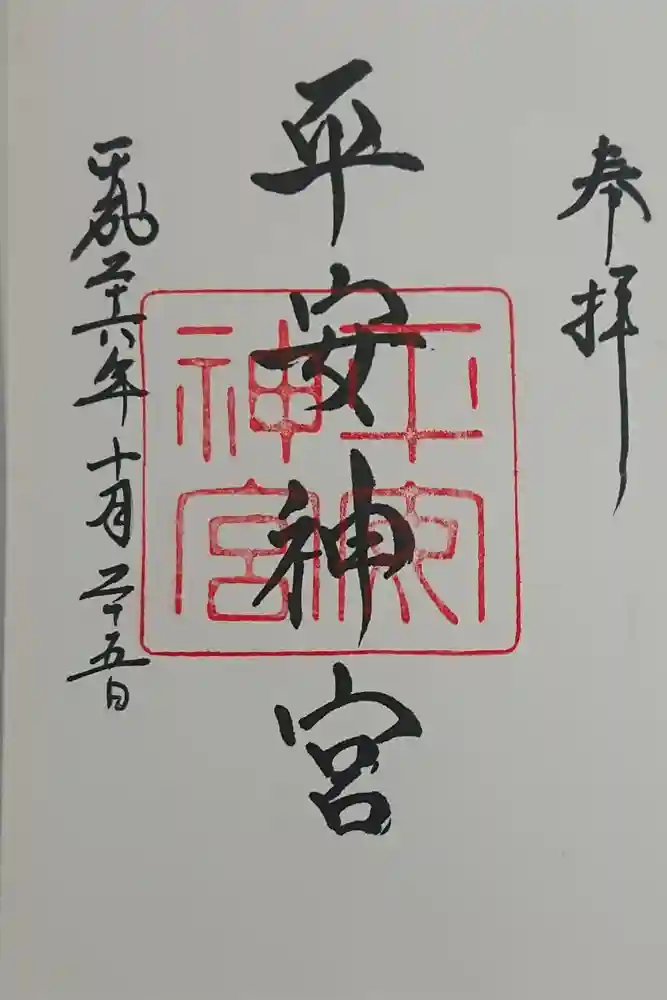 奉拝
平安神宮
平安神宮
平成二十六年十月二十五日